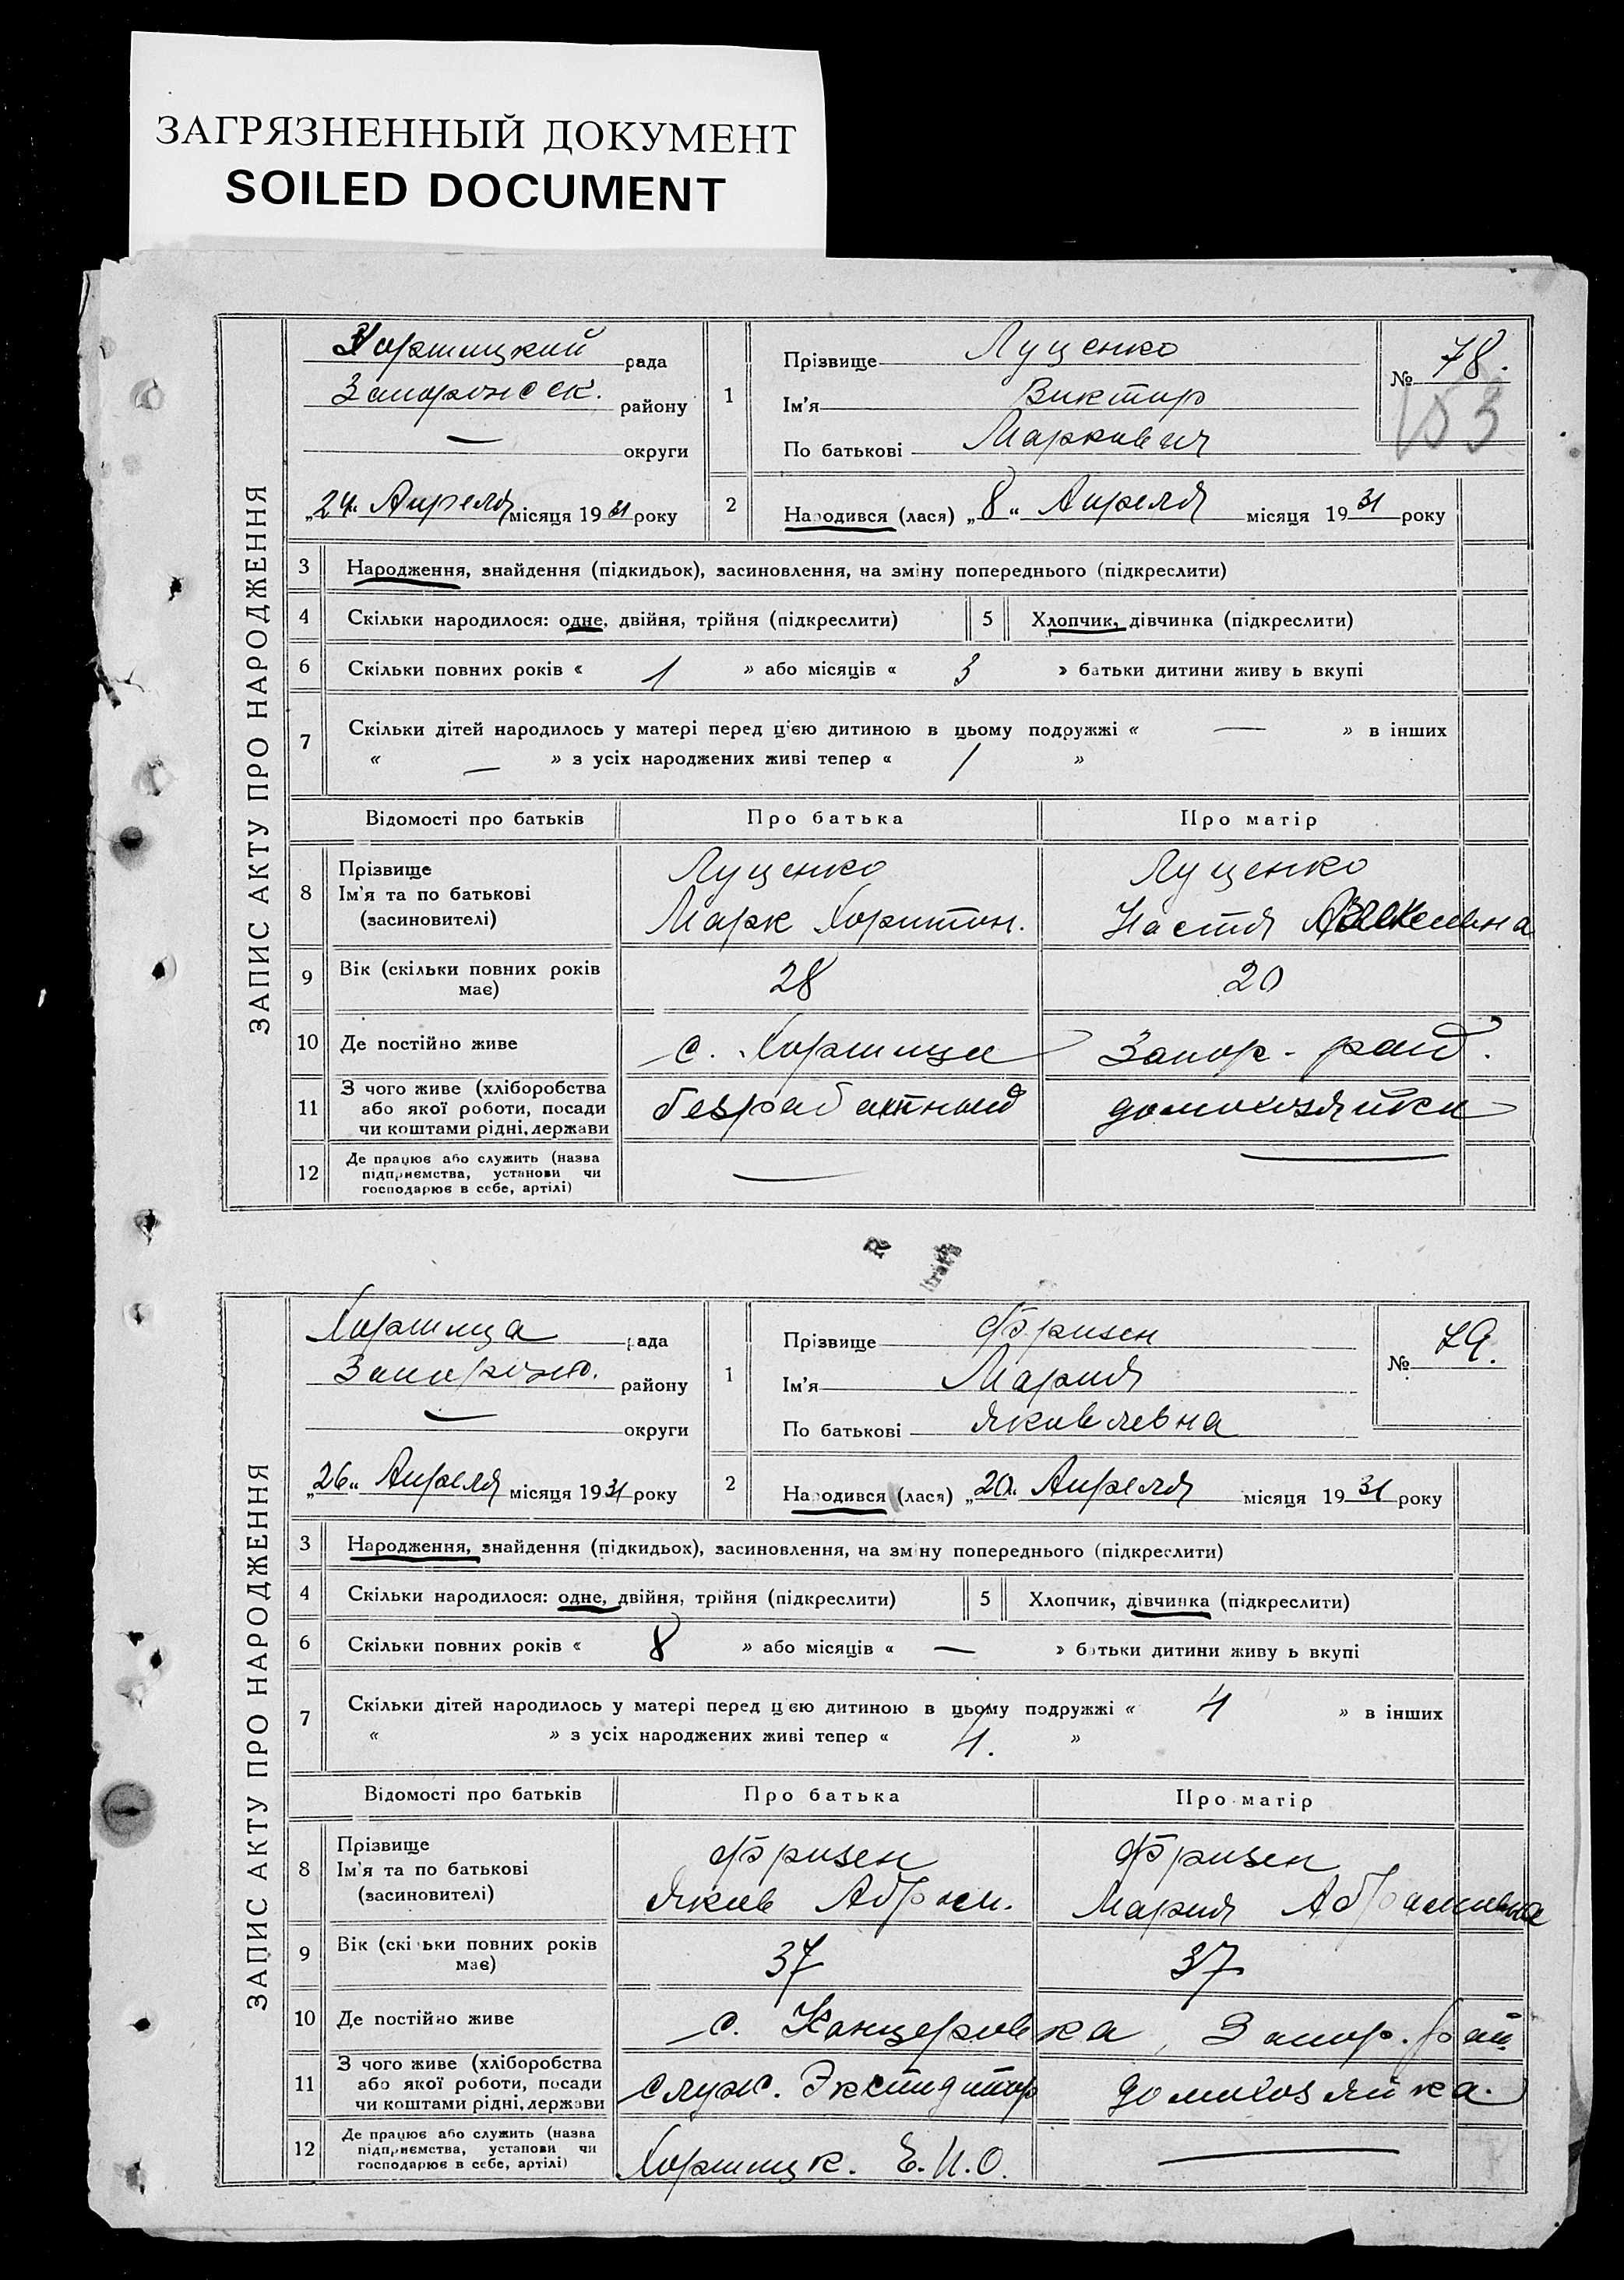 ЗАГРЯЗНЕННЫЙ ДОКУМЕНТ
SOILED DOCUMENT
ЗАПИС АКТУ ПРО НАРОДЖЕННЯ
Хортицкий рада
Запорожск. району
— округи
„24“ Апреля місяця 1931 року
1
Прізвище Луценко
Ім'я Виктор
По батькові Маркович
№ 78.
153
2 Народився (лася) „8“ Апреля місяця 1931 року
3 Народження, знайдення (підкидьок), засиновлення, на зміну попереднього (підкреслити)
4 Скільки народилося: одне, двійня, трійня (підкреслити) 5 Хлопчик, дівчинка (підкреслити)
6 Скільки повних років « 1 » або місяців « 3 » батьки дитини живу ь вкупі
7 Скільки дітей народилось у матері перед цією дитиною в цьому подружжі « — » в інших
« — » з усіх народжених живі тепер « 1 »
Відомості про батьків Про батька Про матір
8 Прізвище
Ім'я та по батькові
(засновителі)
Луценко
Марк Харитон.
Луценко
Настя
9 Вік (скільки повних років має) 28 20
10 Де постійно живе с. Хортица Запор. рай.
11 З чого живе (хліборобства
або якої роботи, посади
чи коштами рідні, держави
безработный домохозяйка
12 Де працює або служить (назва
підприємства, установи чи
господарює в себе, артілі)
— —
ЗАПИС АКТУ ПРО НАРОДЖЕННЯ
Хортица рада
Запорожс. району
— округи
„26“ Апреля місяця 1931 року
1
Прізвище Фризен
Ім'я Мария
По батькові Яковлевна
№ 79.
2 Народився (лася) „20“ Апреля місяця 1931 року
3 Народження, знайдення (підкидьок), засиновлення, на зміну попереднього (підкреслити)
4 Скільки народилося: одне, двійня, трійня (підкреслити) 5 Хлопчик, дівчинка (підкреслити)
6 Скільки повних років « 8 » або місяців « — » батьки дитини живу ь вкупі
7 Скільки дітей народилось у матері перед цією дитиною в цьому подружжі « 4 » в інших
« » з усіх народжених живі тепер « 4. »
Відомості про батьків Про батька Про матір
8 Прізвище
Ім'я та по батькові
(засиновителі)
Фризен
Яков Абрам.
Фризен
Мария Абрамовна
9 Вік (скільки повних років має) 37 37
10 Де постійно живе с. Канцеровка, Запор. рай.
11 З чого живе (хліборобства
або якої роботи, посади
чи коштами рідні, держави
служ. Экспидитор домохозяйка.
12 Де працює або служить (назва
підприємства, установи чи
господарює в себе, артілі)
Хортицк. Е.П.О. —